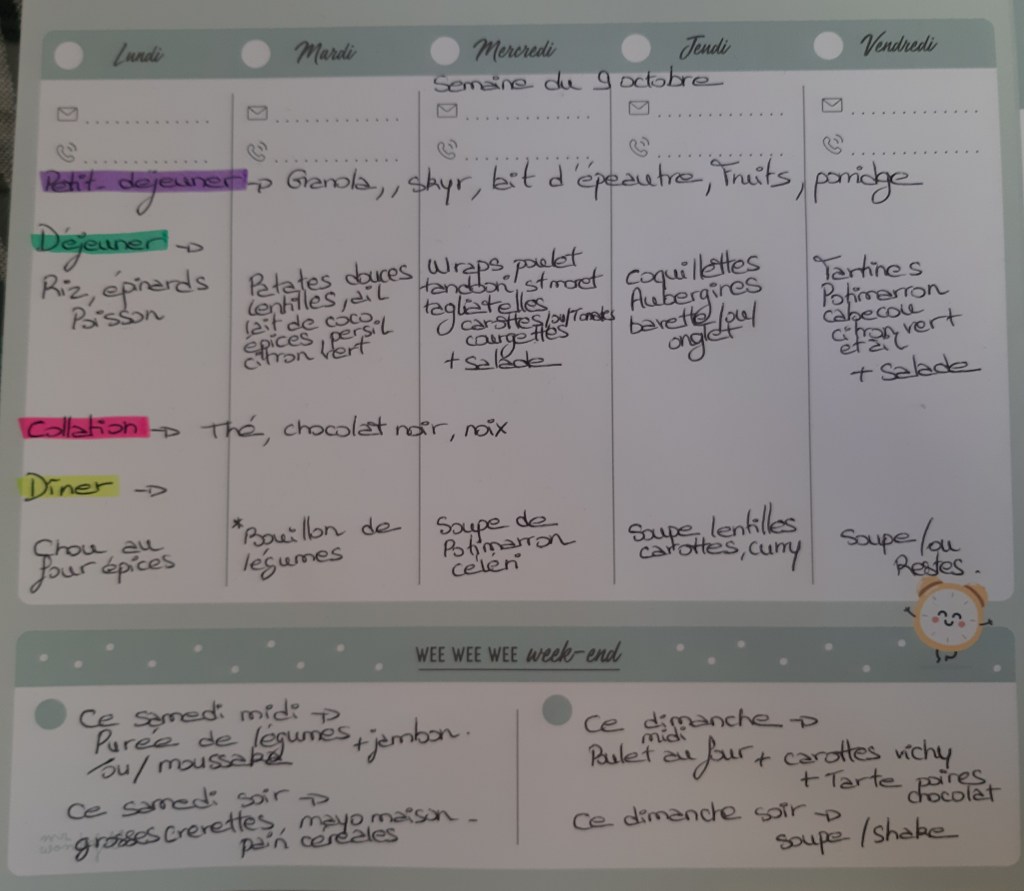 Lundi
Mardi
Mercredi
Jeudi
Vendredi
Semaine du 9 octobre
Petit-déjeuner → Granola,, skyr, lait d'épeautre, Fruits, porridge
Déjeuner →
Riz, épinards
Poisson
Patates douces
lentilles, ail
lait de coco
épices, persil
citron vert
Wraps poulet
tandoori, st moret
tagliatelles
carottes/ou/
courgettes
+ salade
Coquillettes
Aubergines
bavette/ou/
onglet
Tartines
Potimarron
cabecou
citron vert
et ail
+ Salade
Collation → Thé, chocolat noir, noix
Dîner →
Chou au
four épices
*Bouillon de
légumes
Soupe de
Potimarron
celeri
Soupe lentilles
carottes, curry
Soupe/ou
Restes.
WEE WEE WEE week-end
Ce samedi midi →
Purée de légumes + jambon.
/ou/ moussaka
Ce samedi soir →
grosses crevettes, mayo maison -
pain céréales
Ce dimanche →
midi
Poulet au four + carottes vichy
+ Tarte poires
chocolat
Ce dimanche soir →
soupe / shake